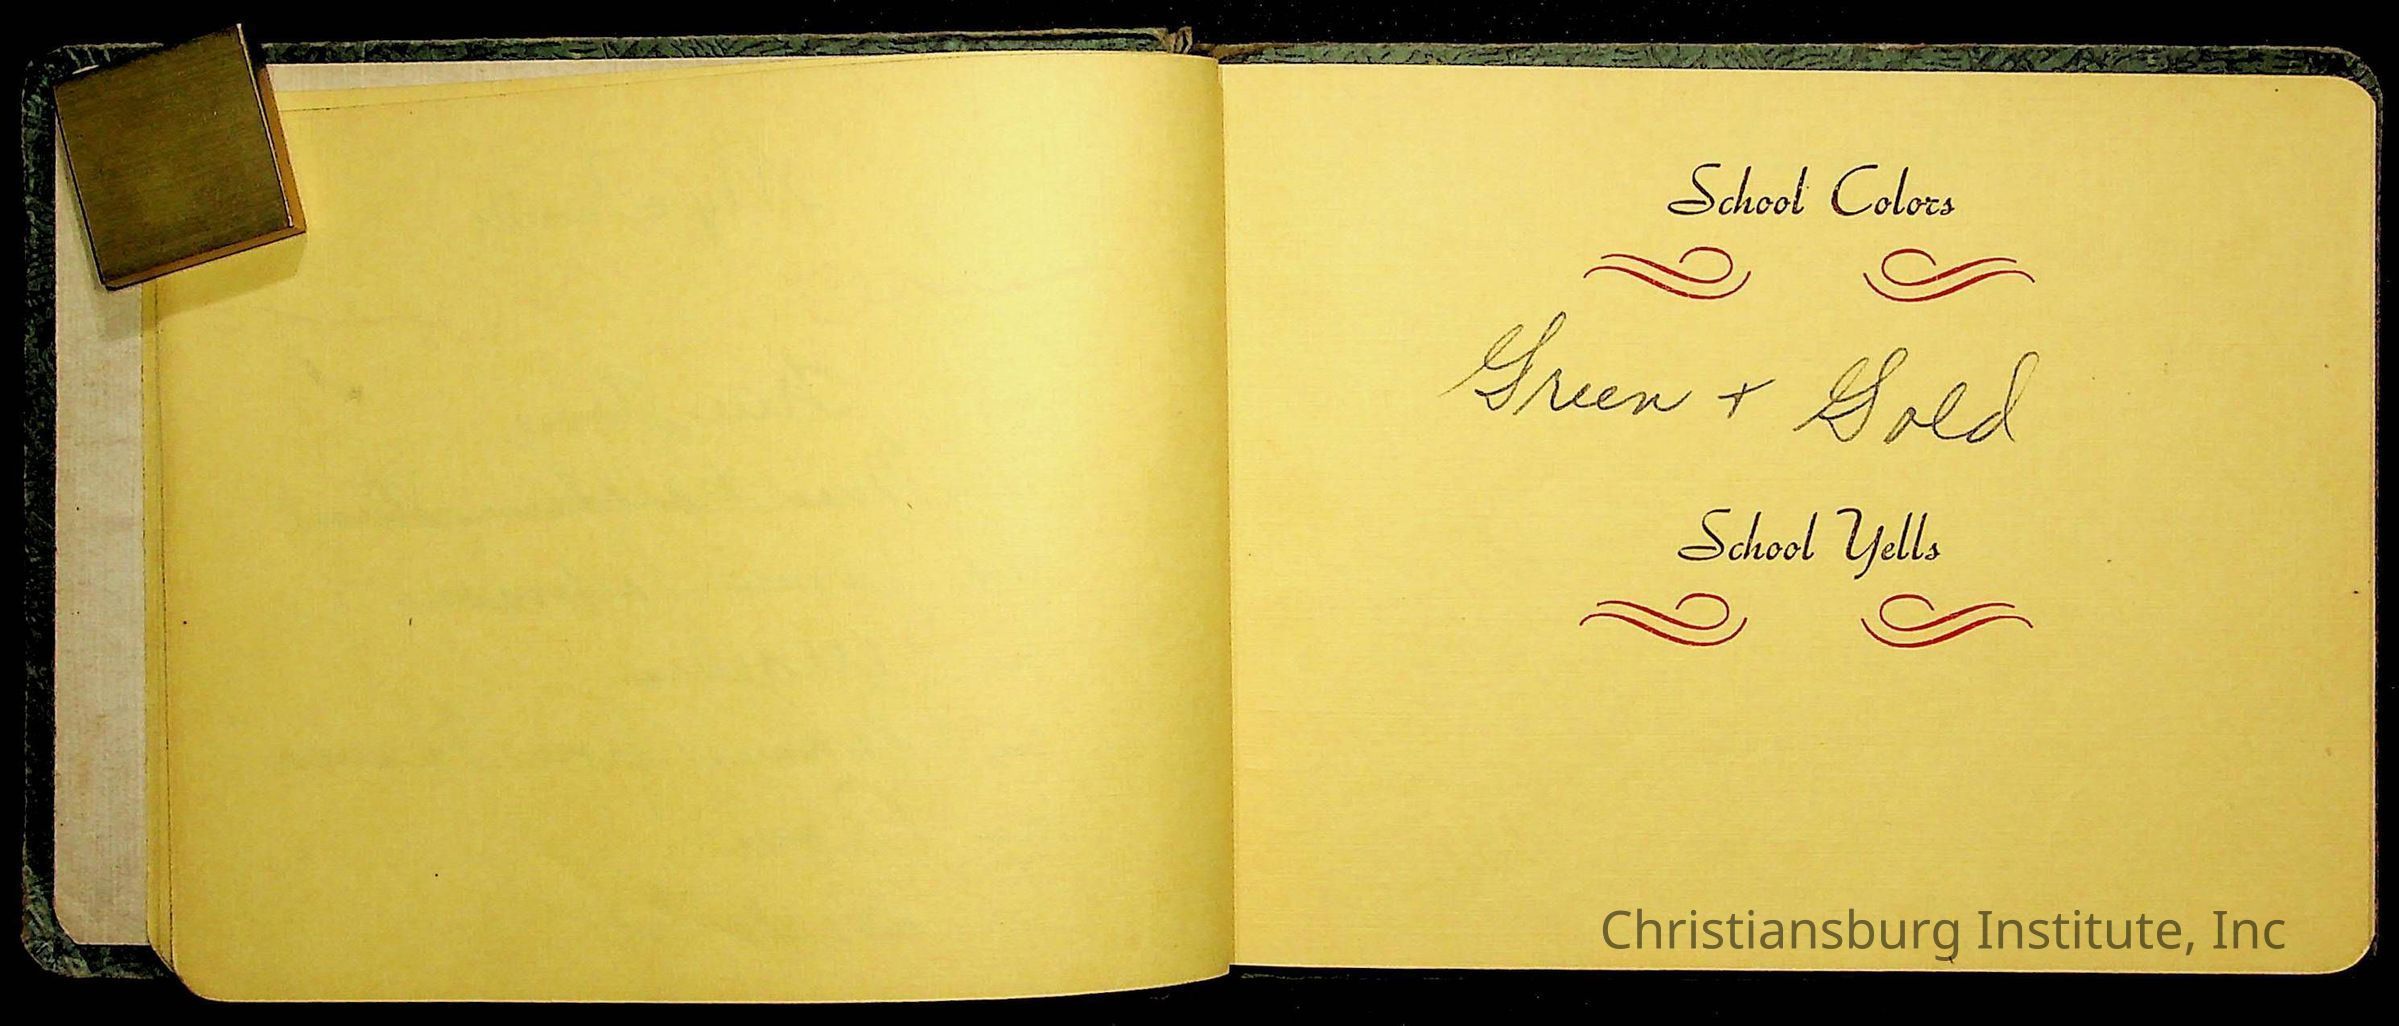 School Colors
Green + Gold
School Yells
Christiansburg Institute, Inc